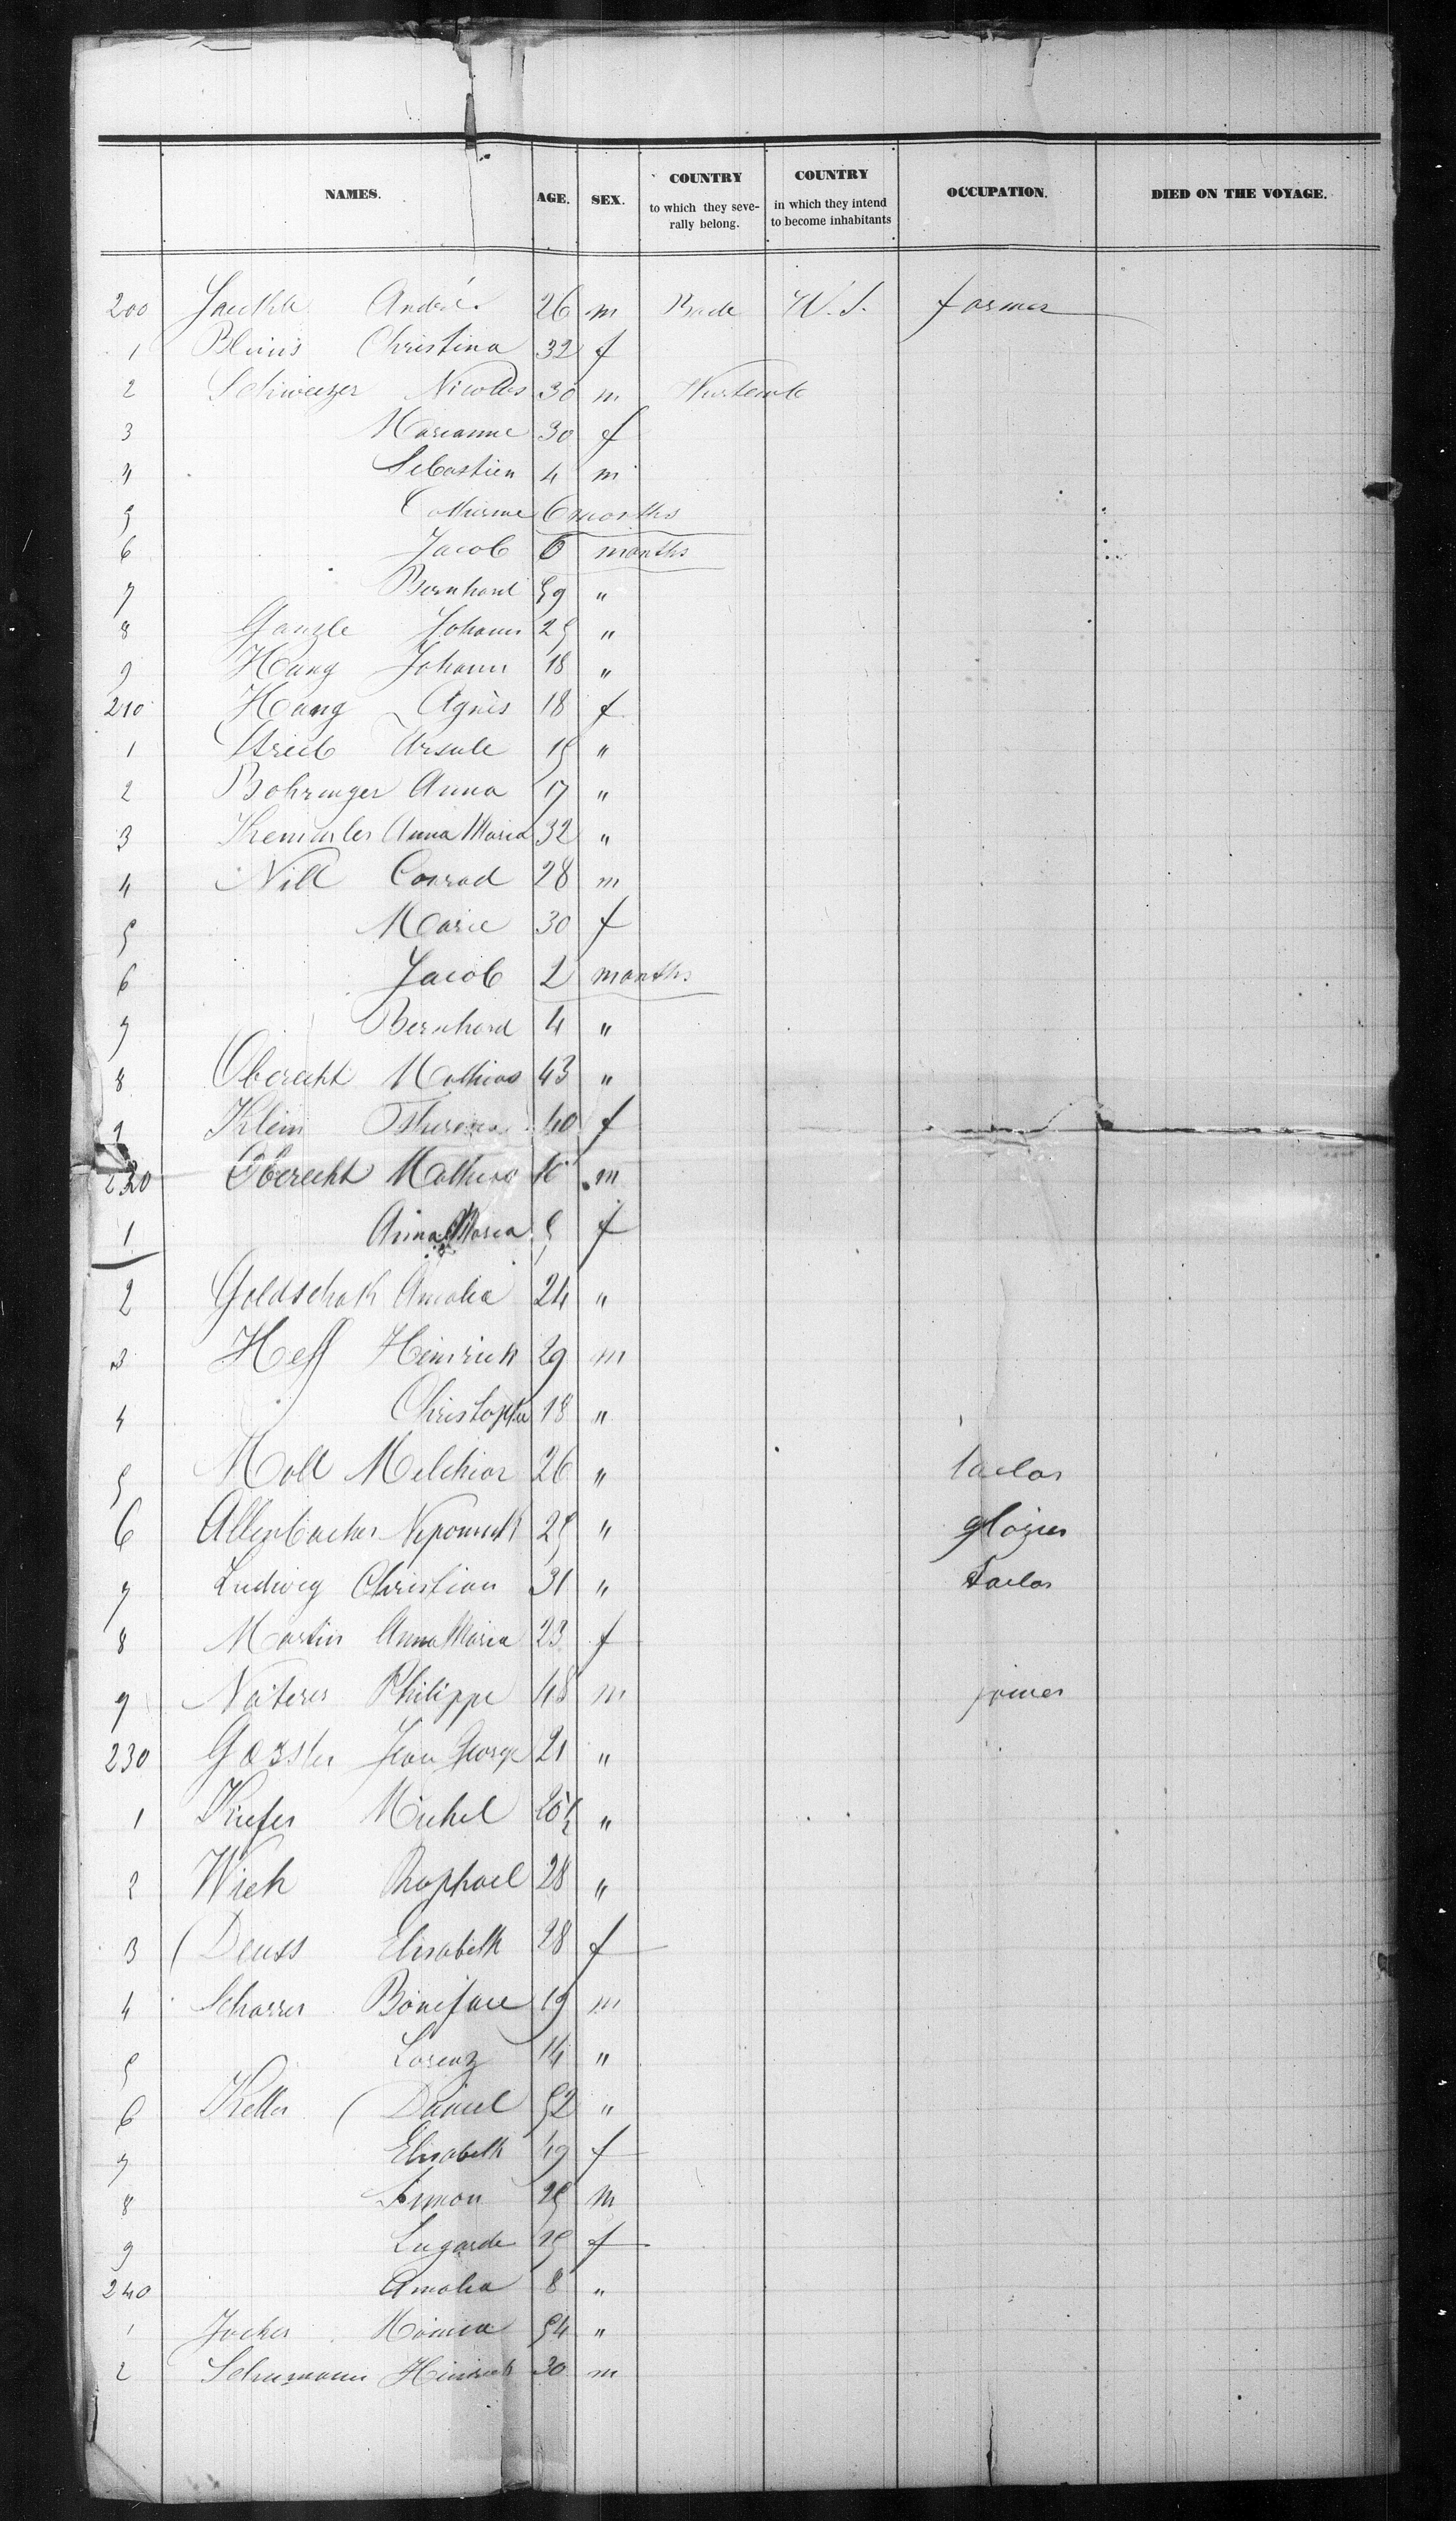 NAMES. AGE. SEX. COUNTRY to which they seve- rally belong. COUNTRY in which they intend to become inhabitants OCCUPATION. DIED ON THE VOYAGE.
200 André 26 m Bade U. S. farmer
1 Christina 32 f
2 Schweizer Nicolas 30 m Wurtemb
3 Marianne 30 f
4 Sebastien 4 m
5 Catherine 6 months
6 Jacob 6 months
7 Bernhard 59 "
8 Ganzle Johann 25 "
9 Haug Johann 18 "
210 Haug Agnès 18 f
1 Streib Ursule 15 "
2 Bohringer Anna 17 "
3 Anna Maria 32 "
4 Nill Conrad 28 m
5 Marie 30 f
6 Jacob 2 months
7 Bernhard 4 "
8 Oberecht Mathias 43 "
9 Klein 40 f
220 Oberecht Mathias m
1 Anna Maria 5 f
2 Goldschak Amalia 24 "
3 Heff Heinrich 29 m
4 Christophe 18 "
5 Moll Melchior 26 "  tailor
6 Allenbacher Nepomuk 25 " glazier
7 Ludwig Christian 31 " tailor
8 Martin Anna Maria 23 f
9 Naterer Philippe 48 m joiner
230 Jean George 21 "
1 Kiefer Michel "
2 Wick Raphael 28 "
3 ( Deuss Elisabeth 28 f
4 Scharrer Boniface 19 m
5 Lorenz 14 "
6 Keller ( Daniel 52 "
7 Elisabeth 49 f
8 Simon 25 m
9 Lugarde 15 f
240 Amalia 8 "
1 Jocher 54 "
2 Schumann Heinrich 30 m